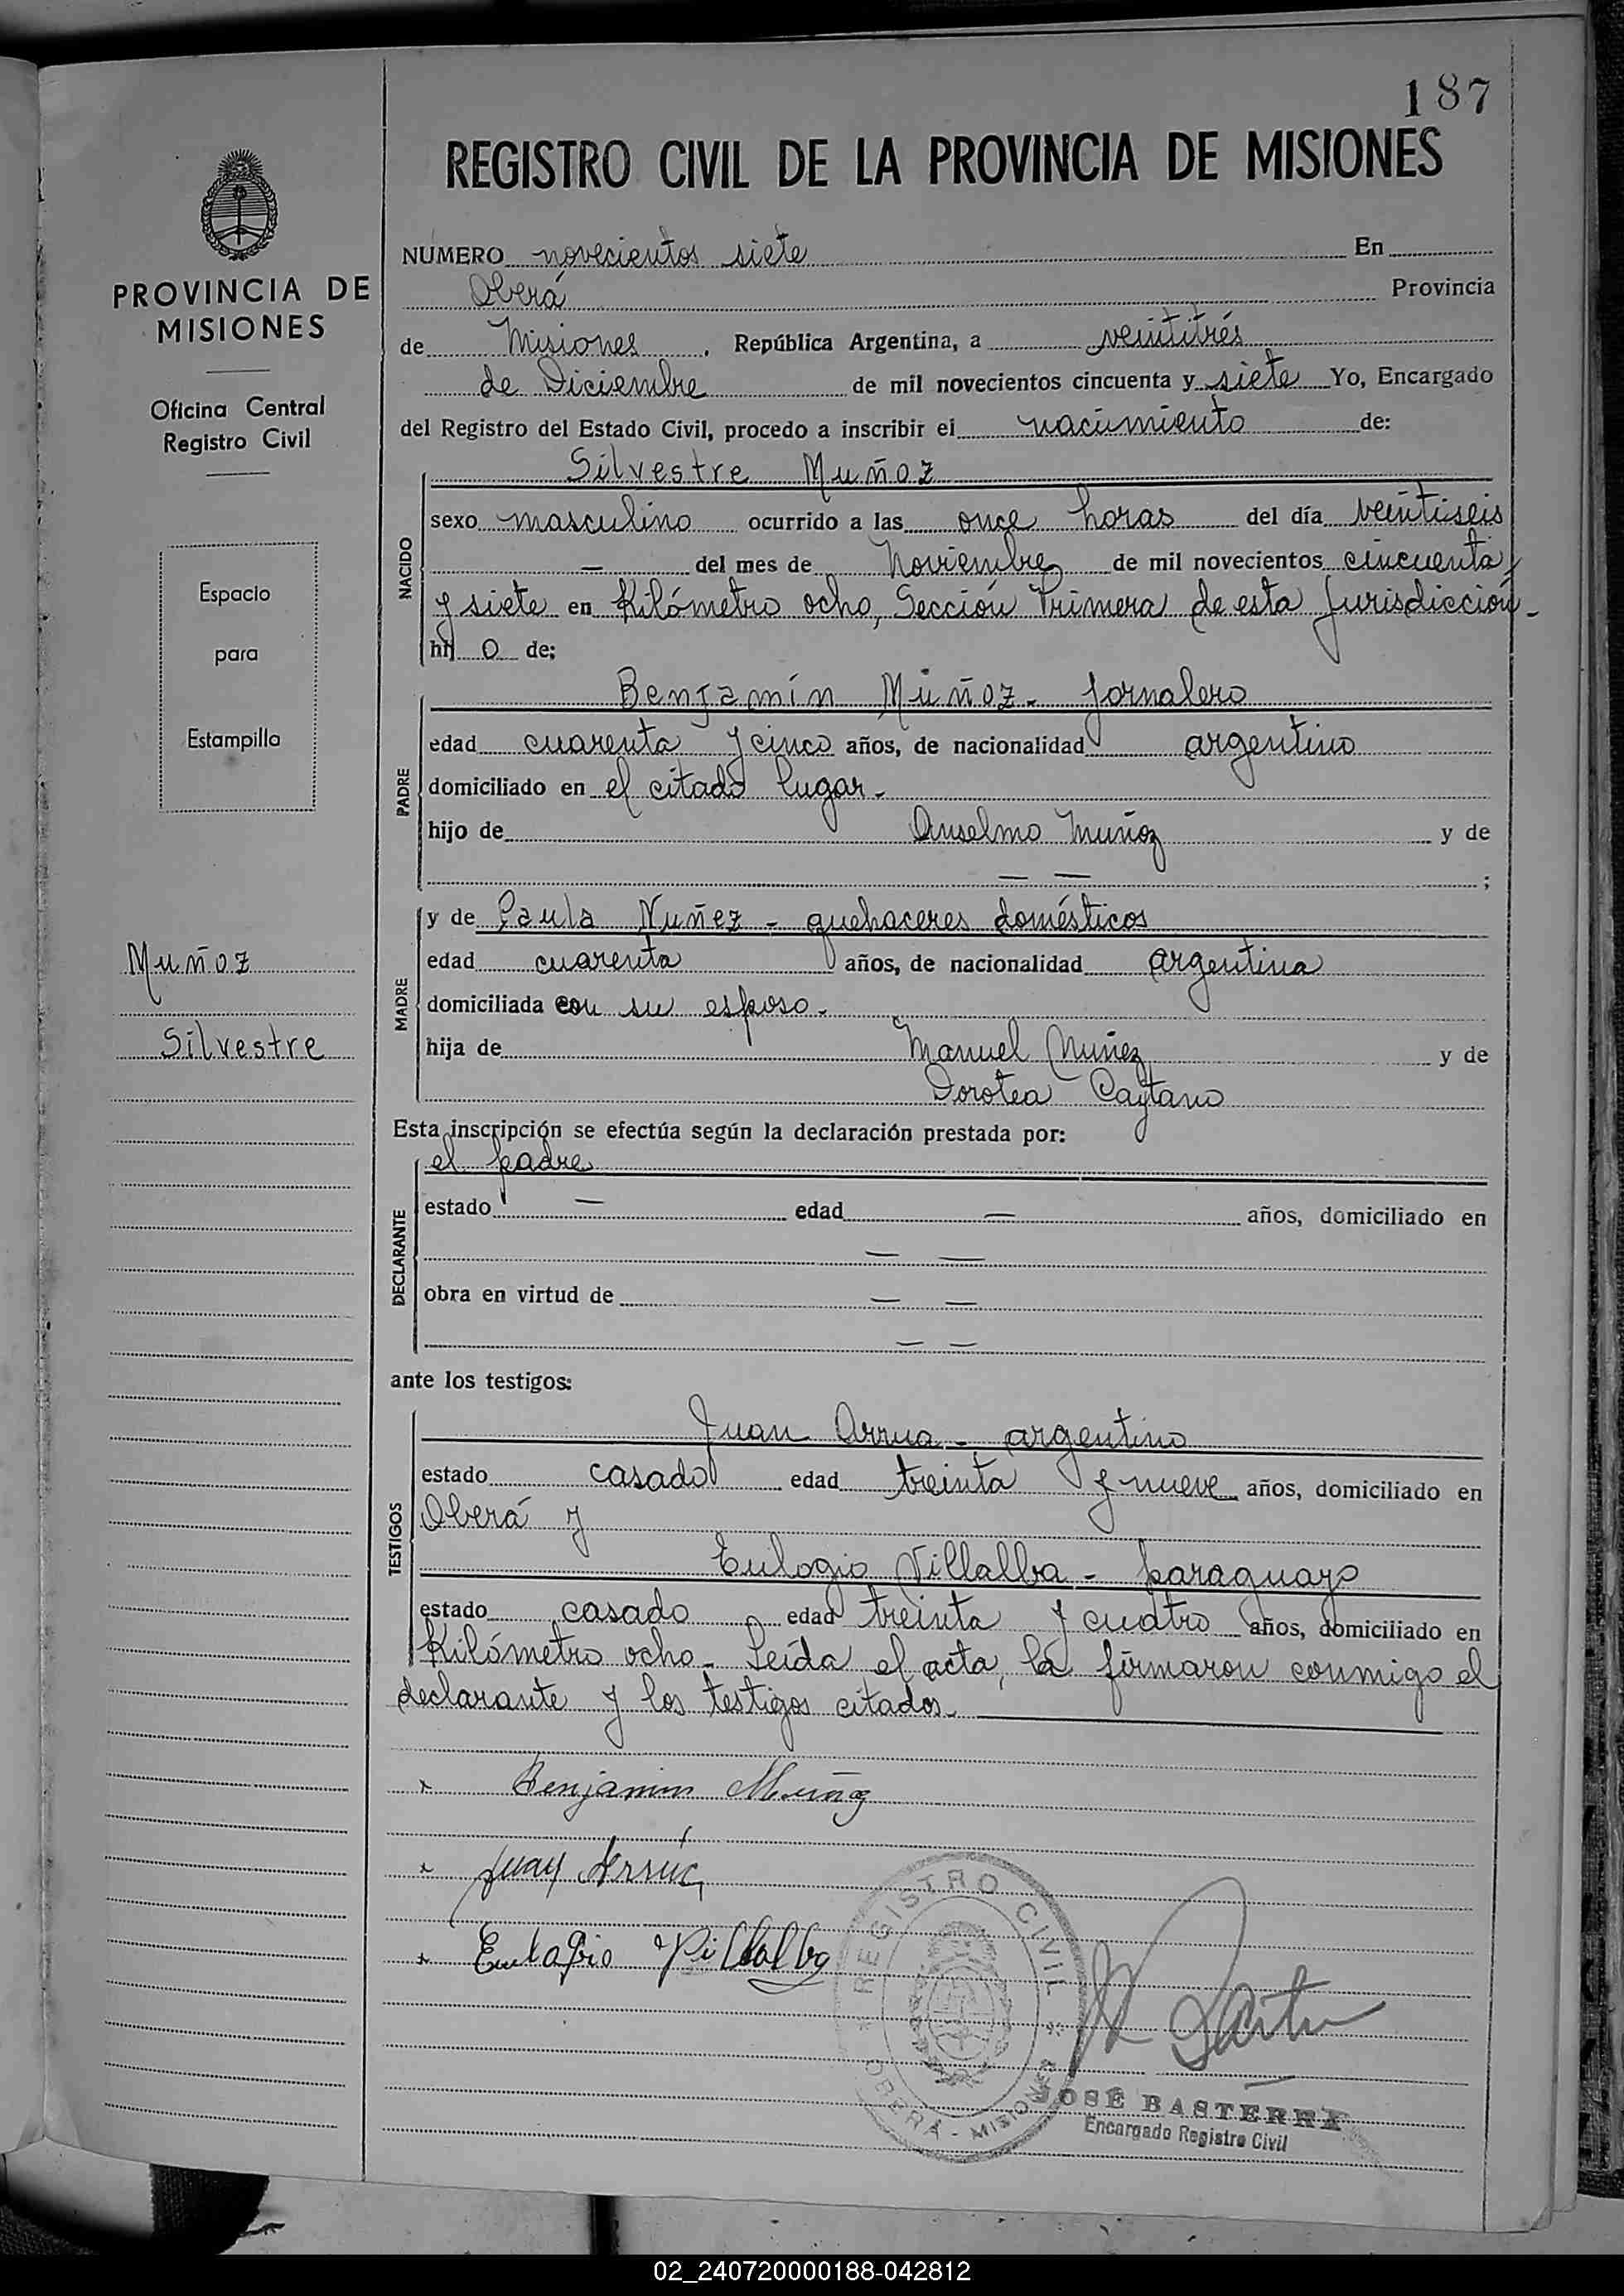 187
REGISTRO CIVIL DE LA PROVINCIA DE MISIONES
PROVINCIA DE
MISIONES
Oficina Central
Registro Civil
Espacio
para
Estampilla
Muñoz
Silvestre
NUMERO novecientos siete En
Oberá Provincia
de Misiones, República Argentina, a veintitrés
de Diciembre de mil novecientos cincuenta y siete Yo, Encargado
del Registro del Estado Civil, procedo a inscribir el nacimiento de:
Silvestre Muñoz
NACIDO
sexo masculino ocurrido a las once horas del día veintiseis
— del mes de Noviembre de mil novecientos cincuenta
y siete en Kilómetro ocho, Sección Primera de esta Jurisdicción-
hij o de:
Benjamín Muñoz - Jornalero
PADRE
edad cuarenta y cinco años, de nacionalidad argentino
domiciliado en el citado lugar-
hijo de Anselmo Muñoz y de
— — ;
y de Paula Nuñez - quehaceres domésticos
MADRE
edad cuarenta años, de nacionalidad argentina
domiciliada con su esposo-
hija de Manuel Nuñez y de
Dorotea Caytano
Esta inscripción se efectúa según la declaración prestada por:
el padre
DECLARANTE
estado — edad — años, domiciliado en
— —
obra en virtud de — —
— —
ante los testigos:
Juan Arrua - argentino
TESTIGOS
estado casado edad treinta y nueve años, domiciliado en
Oberá y
Eulogio Villalba - paraguayo
estado casado edad treinta y cuatro años, domiciliado en
Kilómetro ocho- Leída el acta, la firmaron conmigo el
declarante y los testigos citados-
x Benjamin Muñoz
x Juan Arrúa
x Eulogio Villalba
REGISTRO CIVIL
* OBERÁ - MISIONES *
JOSÉ BASTERRA
Encargado Registro Civil
02_240720000188-042812